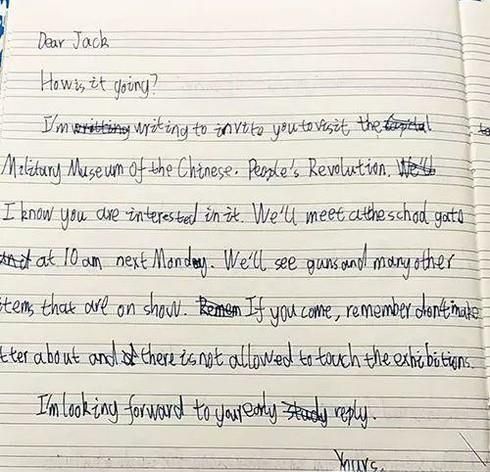 Dear Jack
How is it going?
I'm writing to invite you to visit the
Military Museum of the Chinese. People's Revolution.
I know you are interested in it. We'll meet at the school gate
at 10 am next Monday. We'll see guns and many other
items that are on show. If you come, remember don't make
tter about and there is not allowed to touch the exhibitions.
I'm looking forward to your early reply.
Yours,